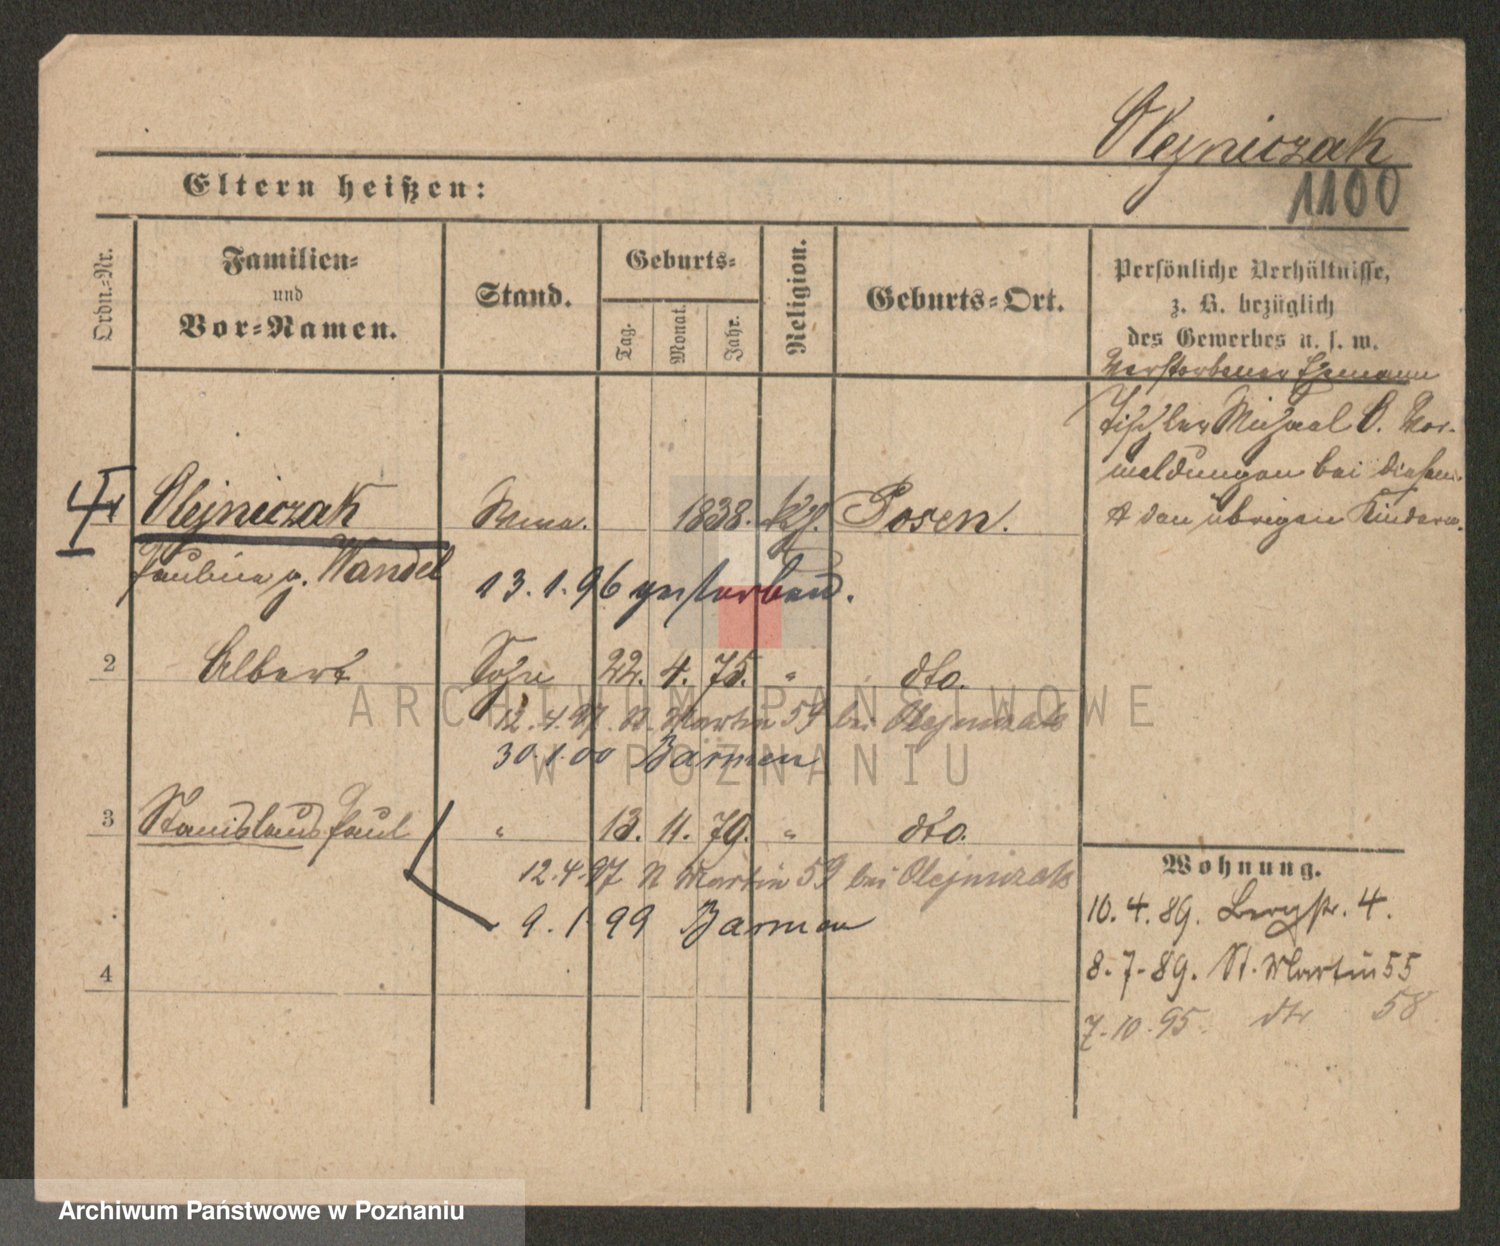 Olejniczak
1100
Eltern heißen:
Ordn.-Nr.
Familien-
und
Vor-Namen.
Stand.
Geburts-
Tag.
Monat.
Jahr.
Religion.
Geburts-Ort.
Persönliche Verhältnisse,
z. B. bezüglich
des Gewerbes u. s. w.
Verstorbener Ehemann
Tischler Michael O. Vor-
meldungen bei diesem
& den übrigen Kindern.
Olejniczak Wwe. 1838. kth. Posen.
Pauline g. Wandel
13.1.96 gestorben.
2 Albert Sohn 22. 4. 75. " dto.
12.4.97 St. Martin 59 bei Olejniczak
30.1.00 Barmen
3 Stanislaus Paul " 13. 11. 79. " dto.
12.4.97 St Martin 59 bei Olejniczak
9.1.99 Barmen
4
Wohnung.
10.4.89. Bergstr. 4.
8.7.89. St. Martin 55
7.10.95. dto 58
ARCHIWUM PAŃSTWOWE
W POZNANIU
Archiwum Państwowe w Poznaniu